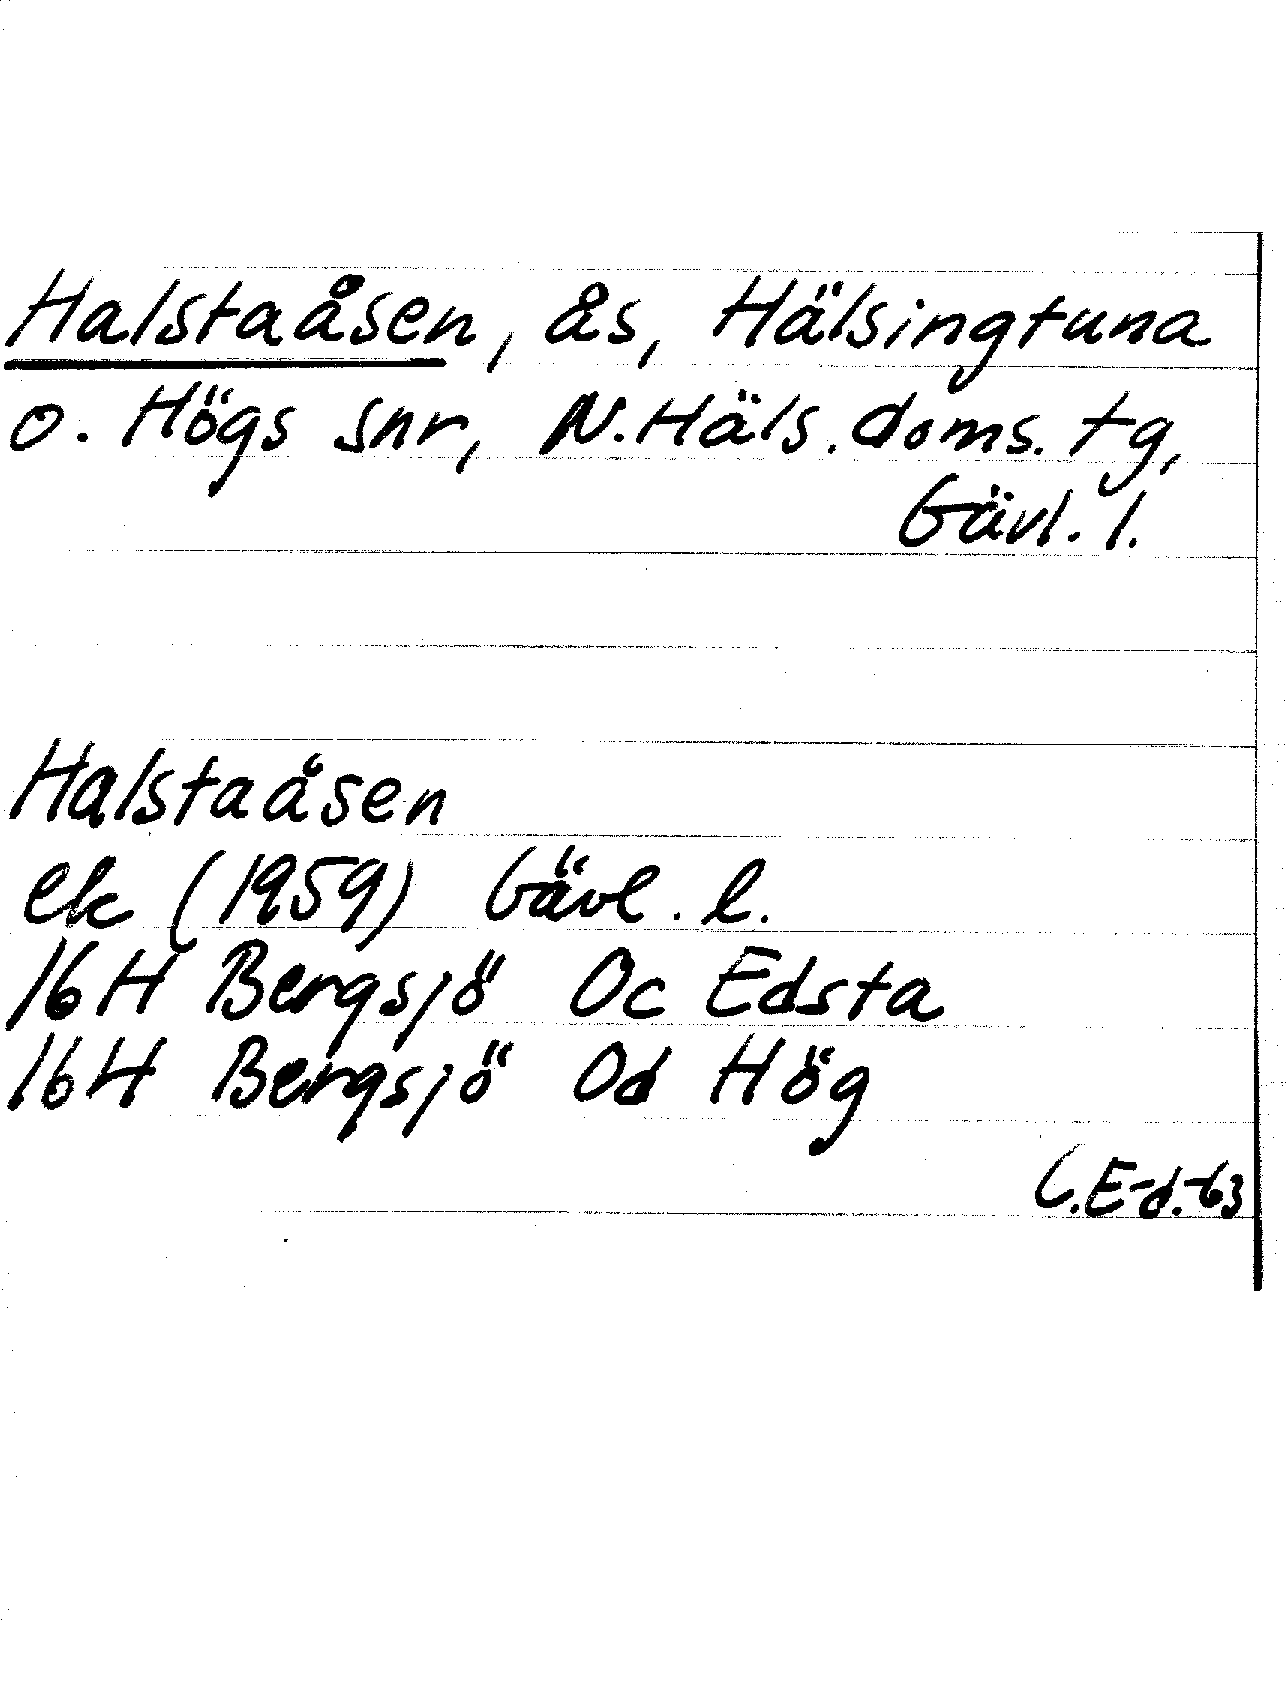 Halstaåsen, ås, Hälsingtuna
o. Högs snr, N.Häls.doms.tg,
Gävl. l.
Halstaåsen
ek (1959) Gävl. l.
16H Bergsjö Oc Edsta
16H Bergsjö Od Hög
C.E-d.-63